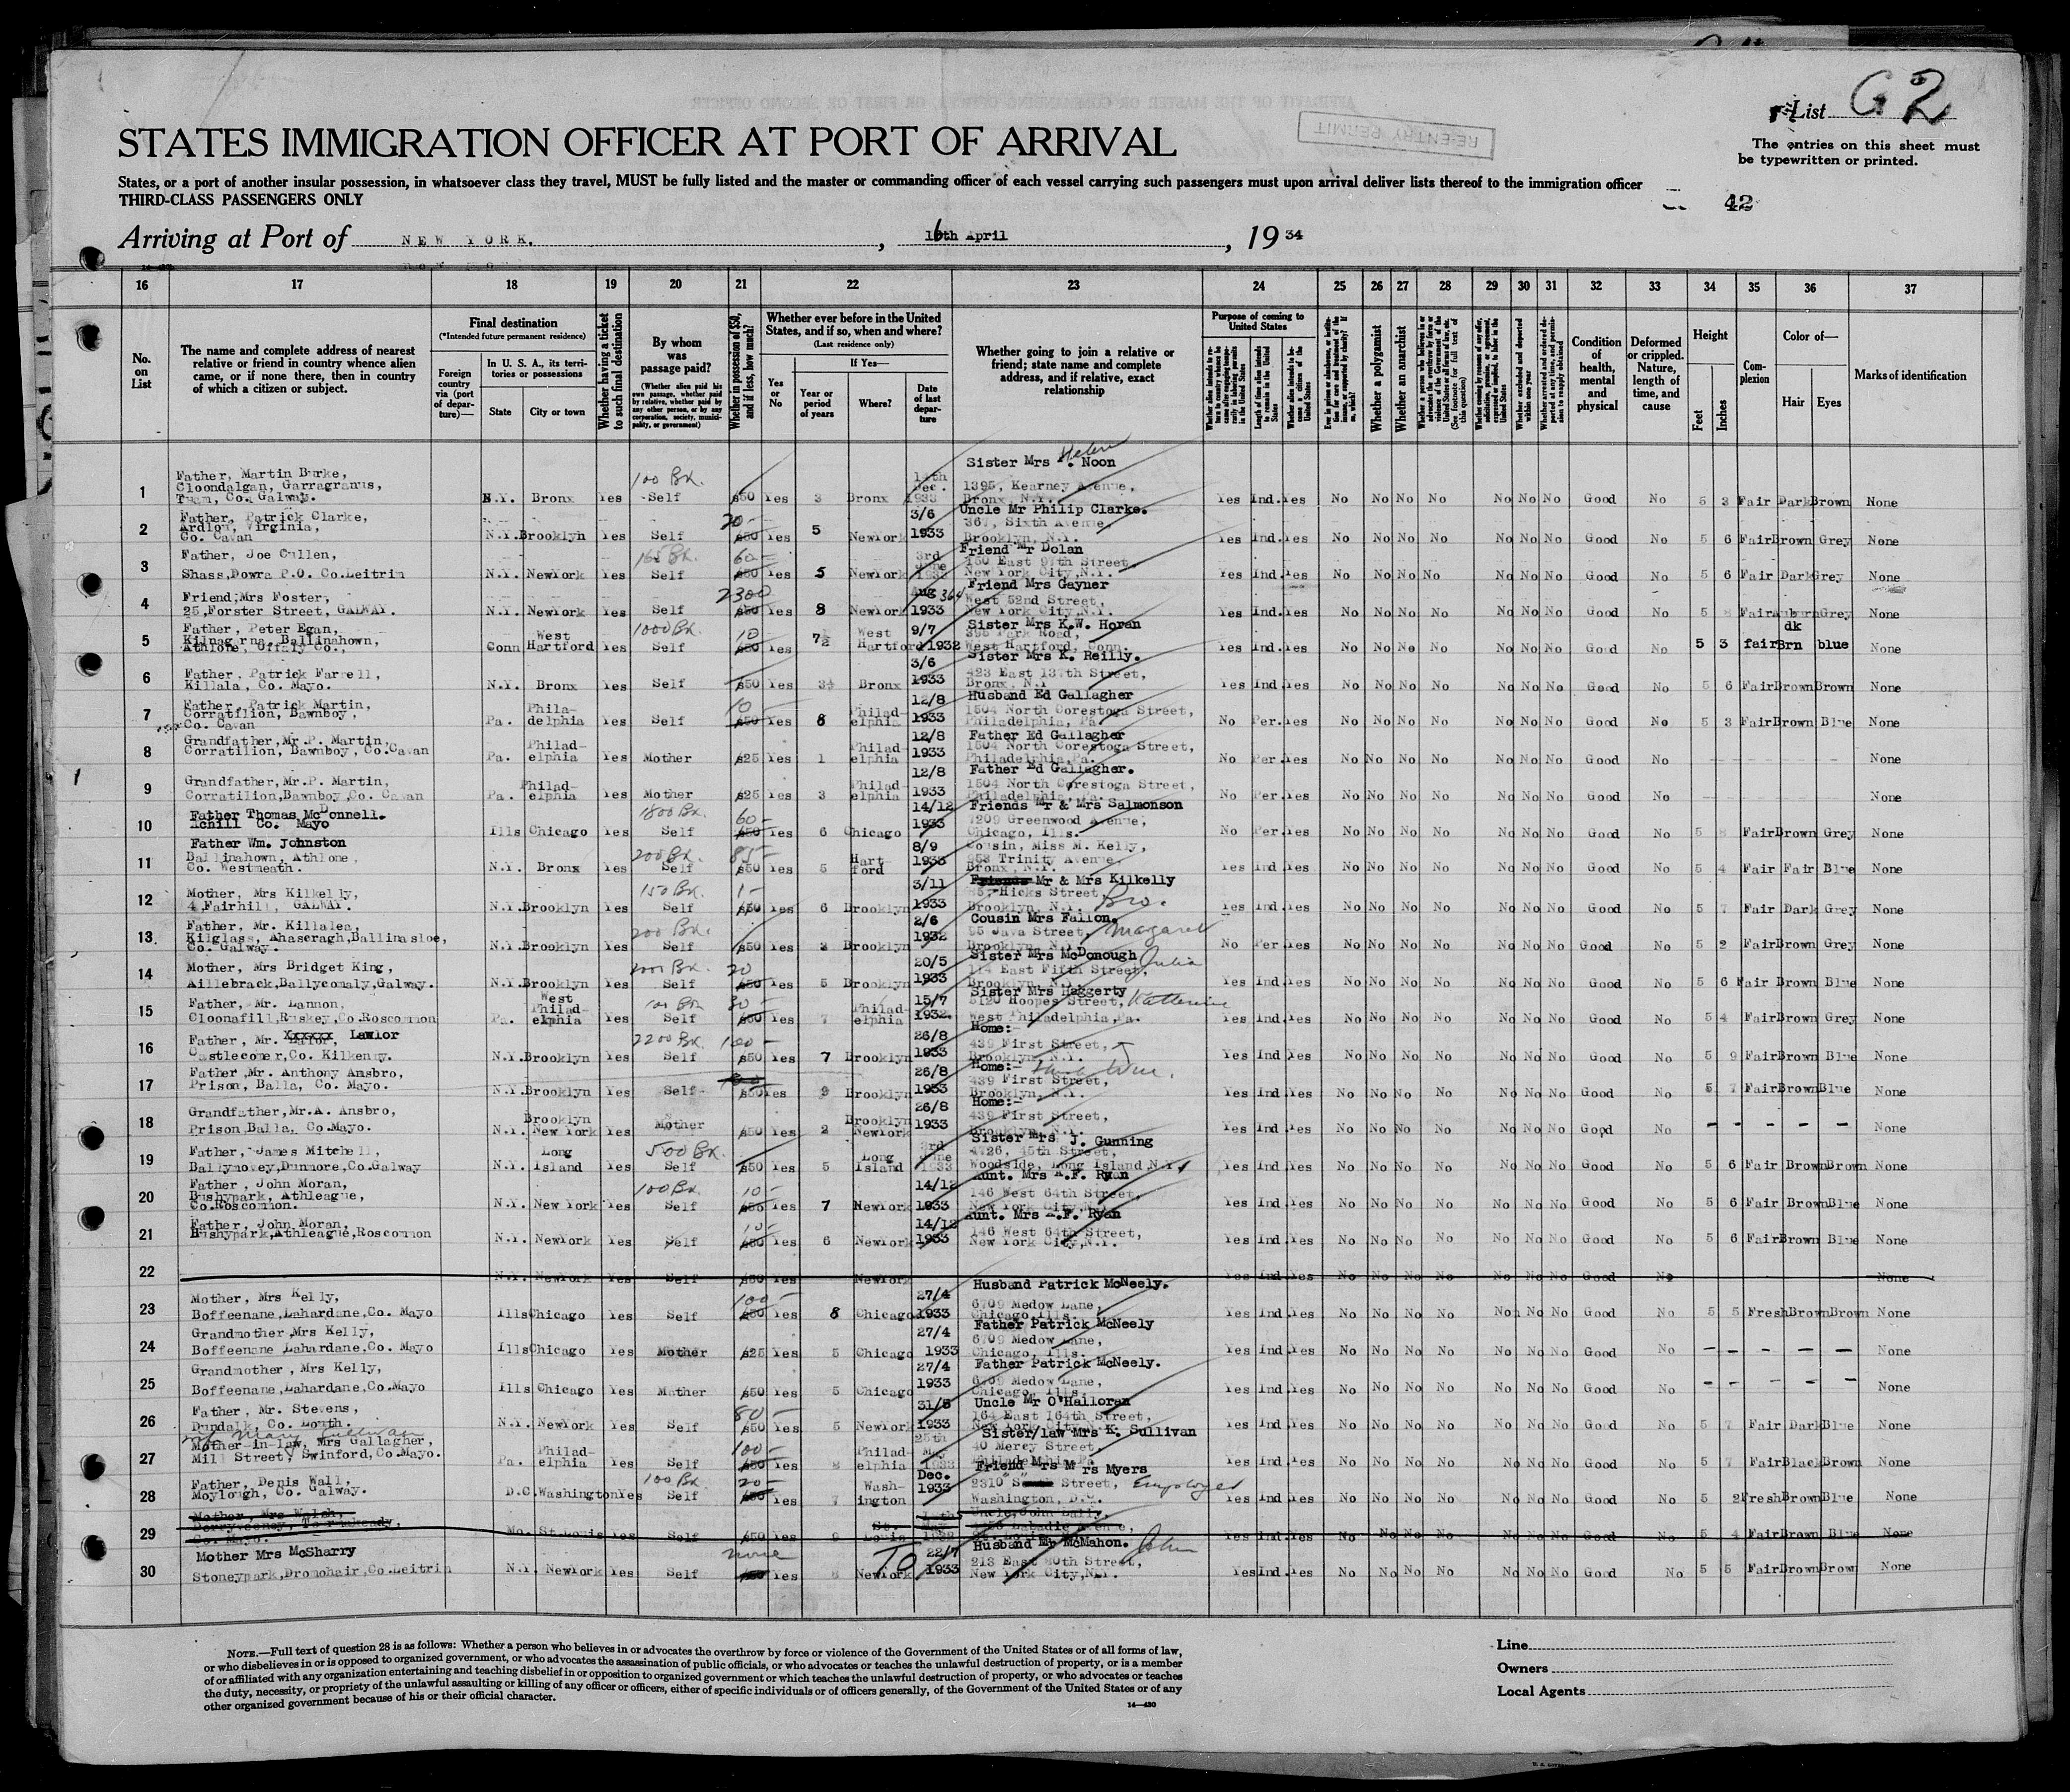 List G2
The entries on this sheet must
be typewritten or printed.
RE-ENTRY PERMIT
STATES IMMIGRATION OFFICER AT PORT OF ARRIVAL
States, or a port of another insular possession, in whatsoever class they travel, MUST be fully listed and the master or commanding officer of each vessel carrying such passengers must upon arrival deliver lists thereof to the immigration officer
THIRD-CLASS PASSENGERS ONLY
42
Arriving at Port of NEW YORK. , 16th April , 1934
16 17 18 19 20 21 22 23 24 25 26 27 28 29 30 31 32 33 34 35 36 37
No. on List
The name and complete address of nearest relative or friend in country whence alien came, or if none there, then in country of which a citizen or subject.
Final destination
(*Intended future permanent residence)
Foreign country via (port of departure)—
In U. S. A., its territories or possessions
State
City or town
Whether having a ticket to such final destination
By whom was passage paid?
(Whether alien paid his own passage, whether paid by relative, whether paid by any other person, or by any corporation, society, municipality, or government)
Whether in possession of $50, and if less, how much?
Whether ever before in the United States, and if so, when and where?
(Last residence only)
Yes or No
If Yes—
Year or period of years
Where?
Date of last departure
Whether going to join a relative or friend; state name and complete address, and if relative, exact relationship
Purpose of coming to United States
Length of time alien intends to remain in the United States
Whether alien intends to become a citizen of the United States
Whether a polygamist
Whether an anarchist
Condition of health, mental and physical
Deformed or crippled. Nature, length of time, and cause
Height
Feet
Inches
Complexion
Color of—
Hair
Eyes
Marks of identification
1 Father, Martin Burke, Cloondalgan, Garragranus, Tuam, Co. Galway. N.Y. Bronx Yes 100 Bx. Self $50 Yes 3 Bronx 14th Dec. 1933 Sister Mrs Helen Noon 1395, Kearney Avenue, Bronx, N.Y. Yes Ind. Yes No No No No No No No Good No 5 3 Fair Dark Brown None
2 Father, Patrick Clarke, Ardlow, Virginia, Co. Cavan N.Y. Brooklyn Yes Self 20- $50 Yes 5 NewYork 3/6 1933 Uncle Mr Philip Clarke. 367, Sixth Avenue, Brooklyn, N.Y. Yes Ind. Yes No No No No No No No Good No 5 6 Fair Brown Grey None
3 Father, Joe Cullen, Shass, Dowra P.O. Co.Leitrim N.Y. NewYork Yes 165 Bx. Self 60- $50 Yes 5 NewYork 3rd June Friend Mr Dolan 150 East 97th Street, New York City, N.Y. Yes Ind. Yes No No No No No No No Good No 5 6 Fair Dark Grey None
4 Friend, Mrs Foster, 25, Forster Street, GALWAY. N.Y. NewYork Yes Self 2300 $50 Yes 8 NewYork Aug 1933 364 Friend Mrs Gayner West 52nd Street, New York City, N.Y. Yes Ind. Yes No No No No No No No Good No 5 8 Fair Auburn Grey None
5 Father, Peter Egan, Kilnagarna, Ballinahown, Athlone, Offaly Co., Conn West Hartford Yes 1000 Bx. Self 10 $50 Yes 7½ West Hartford 9/7 1932 Sister Mrs K.W. Horan 395 Park Road, West Hartford, Conn. Yes Ind. Yes No No No No No No No Good No 5 3 fair dk Brn blue None
6 Father, Patrick Farrell, Killala, Co. Mayo. N.Y. Bronx Yes Self $50 Yes 3½ Bronx 3/6 1933 Sister Mrs K. Reilly. 423 East 137th Street, Bronx, N.Y Yes Ind. Yes No No No No No No No Good No 5 6 Fair Brown Brown None
7 Father, Patrick Martin, Corratilion, Bawnboy, Co. Cavan Pa. Philadelphia Yes Self 10 $50 Yes 8 Philadelphia 12/8 1933 Husband Ed Gallagher 1504 North Corestoga Street, Philadelphia, Pa. No Per. Yes No No No No No No No Good No 5 3 Fair Brown Blue None
8 Grandfather, Mr.P. Martin, Corratilion, Bawnboy, Co.Cavan Pa. Philadelphia Yes Mother $25 Yes 1 Philadelphia 12/8 1933 Father Ed Gallagher 1504 North Corestoga Street, Philadelphia, Pa. No Per. Yes No No No No No No No Good No None
9 Grandfather, Mr.P. Martin, Corratilion, Bawnboy, Co. Cavan Pa. Philadelphia Yes Mother $25 Yes 3 Philadelphia 12/8 1933 Father Ed Gallagher. 1504 North Corestoga Street, Philadelphia, Pa. No Per. Yes No No No No No No No Good No None
10 Father Thomas McDonnell. Achill Co. Mayo Ills Chicago Yes 1800 Bx. Self 60- $50 Yes 6 Chicago 14/12 1933 Friends Mr & Mrs Salmonson 7209 Greenwood Avenue, Chicago, Ills. No Per. Yes No No No No No No No Good No 5 8 Fair Brown Grey None
11 Father Wm. Johnston Ballinahown, Athlone, Co. Westmeath. N.Y. Bronx Yes 200 Bx. Self 85- $50 Yes 5 Hartford 8/9 1933 Cousin, Miss M. Kelly, 953 Trinity Avenue, Bronx, N.Y. Yes Ind Yes No No No No No No No Good No 5 4 Fair Fair Blue None
12 Mother, Mrs Kilkelly, 4, Fairhill, GALWAY. N.Y. Brooklyn Yes 150 Bx. Self 1- $50 Yes 6 Brooklyn 3/11 1933 Friends Mr & Mrs Kilkelly Hicks Street, Brooklyn, N.Y. Bro. Yes Ind. Yes No No No No No No No Good No 5 7 Fair Dark Grey None
13. Father, Mr. Killalea, Kilglass, Ahaseragh, Ballinasloe, Co. Galway. N.Y. Brooklyn Yes 200 Bx. Self $50 Yes 3 Brooklyn 2/6 1932 Cousin Mrs Fallon. 95 Java Street, Brooklyn, N.Y. Margaret No Per Yes No No No No No No No Good No 5 2 Fair Brown Grey None
14 Mother, Mrs Bridget King, Aillebrack, Ballyconaly, Galway. N.Y. Brooklyn Yes 1000 Bx. Self 20 $50 Yes 5 Brooklyn 20/5 1933 Sister Mrs McDonough Julia 114 East Fifth Street, Brooklyn, N.Y. Yes Ind. Yes No No No No No No No Good No 5 6 Fair Brown Blue None
15 Father, Mr. Lannon, Cloonafill, Ruskey, Co. Roscommon Pa. West Philadelphia Yes 100 Bx Self 30- $50 Yes 7 Philadelphia 15/7 1932. Sister Mrs Haggerty 5120 Hoopes Street, Katherine West Philadelphia, Pa. Yes Ind. Yes No No No No No No No Good No 5 4 Fair Brown Grey None
16 Father, Mr. Lawlor Castlecomer, Co. Kilkenny. N.Y. Brooklyn Yes 2200 Bx. Self 100- $50 Yes 7 Brooklyn 26/8 1933 Home:- 439 First Street, Brooklyn, N.Y. Yes Ind Yes No No No No No No No Good No 5 9 Fair Brown Blue None
17 Father, Mr. Anthony Ansbro, Prison, Balla, Co. Mayo. N.Y. Brooklyn Yes Self $50 Yes 9 Brooklyn 26/8 1933 Home:- 439 First Street, Brooklyn, N.Y. Yes Ind. Yes No No No No No No No Good No 5 7 Fair Brown Blue None
18 Grandfather, Mr.A. Ansbro, Prison, Balla, Co.Mayo. N.Y. Brooklyn New York Yes Mother $50 Yes 2 Brooklyn NewYork 26/8 1933 Home:- 439 First Street, Brooklyn, N.Y. Yes Ind Yes No No No No No No No Good No - - - - - None
19 Father, James Mitchell, Ballymoney, Dunmore, Co.Galway N.Y. Long Island Yes 500 Bx. Self $50 Yes 5 Long Island 3rd June 1933 Sister Mrs J. Gunning 4726, 45th Street, Woodside, Long Island N.Y. Yes Ind Yes No No No No No No No Good No 5 6 Fair Brown Brown None
20 Father, John Moran, Bushypark, Athleague, Co.Roscommon. N.Y. New York Yes 100 Bx. Self 10- $50 Yes 7 NewYork 14/12 1933 Aunt. Mrs A.F. Ryan 146 West 64th Street, New York City, N.Y. Yes Ind. Yes No No No No No No No Good No 5 6 Fair Brown Blue None
21 Father, John Moran, Bushypark, Athleague, Roscommon N.Y. NewYork Yes Self 10- $50 Yes 6 NewYork 14/12 1933 Aunt. Mrs A.F. Ryan 146 West 64th Street, New York City, N.Y. Yes Ind. Yes No No No No No No No Good No 5 6 Fair Brown Blue None
22 N.Y. NewYork Yes Self $50 Yes NewYork Yes Ind. Yes No No No No No No No Good No None
23 Mother, Mrs Kelly, Boffeenane, Lahardane, Co. Mayo Ills Chicago Yes Self 100- $50 Yes 8 Chicago 27/4 1933 Husband Patrick McNeely. 6709 Medow Lane, Chicago, Ills. Yes Ind. Yes No No No No No No No Good No 5 5 Fresh Brown Brown None
24 Grandmother, Mrs Kelly, Boffeenane, Lahardane, Co. Mayo Ills Chicago Yes Mother $25 Yes 5 Chicago 27/4 1933 Father Patrick McNeely 6709 Medow Lane, Chicago, Ills. Yes Ind. Yes No No No No No No No Good No - - - - - None
25 Grandmother, Mrs Kelly, Boffeenane, Lahardane, Co.Mayo Ills Chicago Yes Mother $50 Yes 5 Chicago 27/4 1933 Father Patrick McNeely. 6709 Medow Lane, Chicago, Ills. Yes Ind. Yes No No No No No No No Good No - - - - - None
26 Father, Mr. Stevens, Dundalk, Co. Louth. N.Y. NewYork Yes Self 80- $50 Yes 5 NewYork 31/5 1933 Uncle Mr O'Halloran 164 East 164th Street, New York City, N.Y. Yes Ind Yes No No No No No No No Good No 5 7 Fair Dark Blue None
27 Mary Sullivan Mother-in-law, Mrs Gallagher, Mill Street, Swinford, Co.Mayo. Pa. Philadelphia Yes Self 100- $50 Yes 8 Philadelphia 25th May 1933 Sister/law Mrs K. Sullivan 40 Mercy Street, Philadelphia, Pa. Yes Ind. Yes No No No No No No No Good No 5 7 Fair Black Brown None
28 Father, Denis Wall, Moylough, Co. Galway. D.C. Washington Yes 100 Bx Self 20- $50 Yes 7 Washington Dec. 1933 Friend Mrs Myers 2310 Street, Employer Washington, D.C. Yes Ind Yes No No No No No No No Good No 5 2 Fresh Brown Blue None
29 Mother, Mrs Walsh, Co. Mayo. Mo. St.Louis Yes Self $50 Yes 9 St. Louis Uncle, John Lally, Labadie Avenue, Yes Ind. Yes No No No No No No No Good No 5 4 Fair Brown Blue None
30 Mother Mrs McSharry Stoneypark, Dromohair, Co.Leitrim N.Y. NewYork Yes Self none Yes 8 NewYork TO 22/7 1933 Husband Mr McMahon. John 213 East 80th Street, New York City, N.Y. Yes Ind. Yes No No No No No No No Good No 5 5 Fair Brown Brown None
NOTE.—Full text of question 28 is as follows: Whether a person who believes in or advocates the overthrow by force or violence of the Government of the United States or of all forms of law,
or who disbelieves in or is opposed to organized government, or who advocates the assassination of public officials, or who advocates or teaches the unlawful destruction of property, or is a member
of or affiliated with any organization entertaining and teaching disbelief in or opposition to organized government or which teaches the unlawful destruction of property, or who advocates or teaches
the duty, necessity, or propriety of the unlawful assaulting or killing of any officer or officers, either of specific individuals or of officers generally, of the Government of the United States or of any
other organized government because of his or their official character.
14—430
Line
Owners
Local Agents